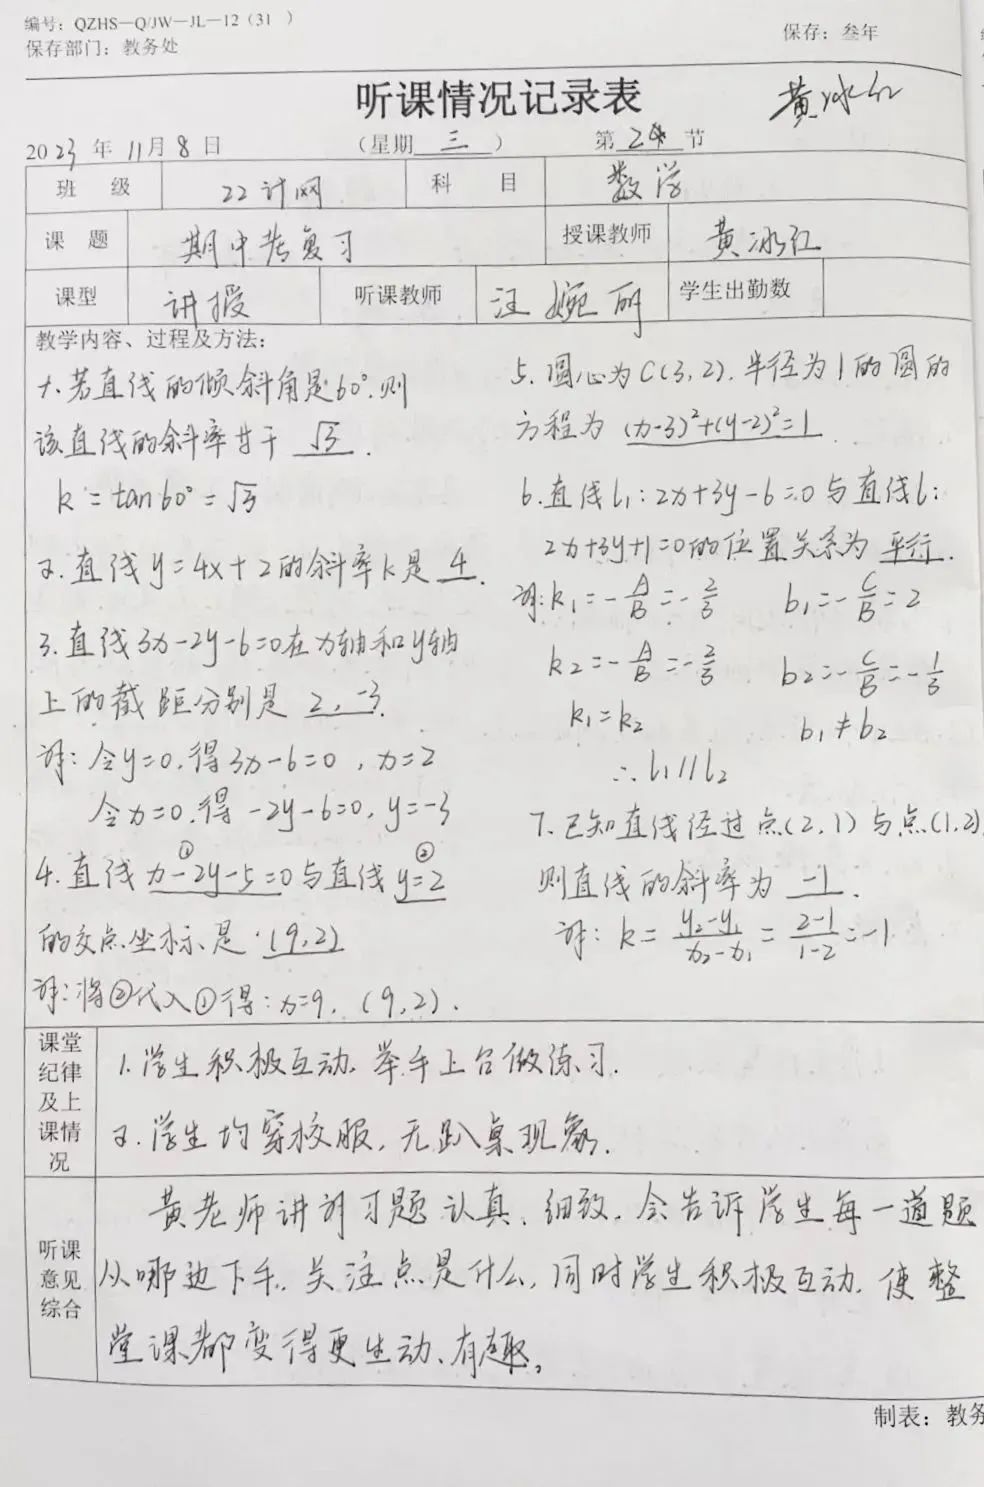 编号：QZHS—Q/JW—JL—12（31 ）
保存部门：教务处
保存：叁年
听课情况记录表
黄冰红
2023 年 11月 8 日 （星期 三 ） 第 节
班 级 22计网 科 目 数学
课 题 期中考复习 授课教师 黄冰红
课型 讲授 听课教师 汪婉丽 学生出勤数
教学内容、过程及方法：
1.若直线的倾斜角是60°.则
该直线的斜率等于 √3 .
k = tan60° = √3
2.直线y=4x+2的斜率k是 4 .
3.直线3x-2y-6=0在x轴和y轴
上的截距分别是 2，-3
解：令y=0.得3x-6=0，x=2
令x=0.得 -2y-6=0，y=-3
① ②
4.直线x-2y-5=0与直线y=2
的交点坐标是 (9,2)
解：将②代入①得：x=9，(9,2).
5.圆心为C(3,2).半径为1的圆的
方程为 (x-3)²+(y-2)²=1 .
6.直线l₁：2x+3y-6=0与直线l：
2x+3y+1=0的位置关系为 平行 .
解：k₁=-A/B=-2/3 b₁=-C/B=2
k₂=-A/B=-2/3 b₂=-C/B=-1/3
k₁=k₂ b₁≠b₂
∴l₁//l₂
7.已知直线经过点(2,1)与点(1,2)
则直线的斜率为 -1 .
解：k=(y₂-y₁)/(x₂-x₁)=(2-1)/(1-2)=-1
课堂
纪律
及上
课情
况
1.学生积极互动.举手上台做练习.
2.学生均穿校服，无趴桌现象.
听课
意见
综合
黄老师讲解习题认真、细致，会告诉学生每一道题
从哪边下手，关注点是什么，同时学生积极互动，使整
堂课都变得更生动、有趣。
制表：教务